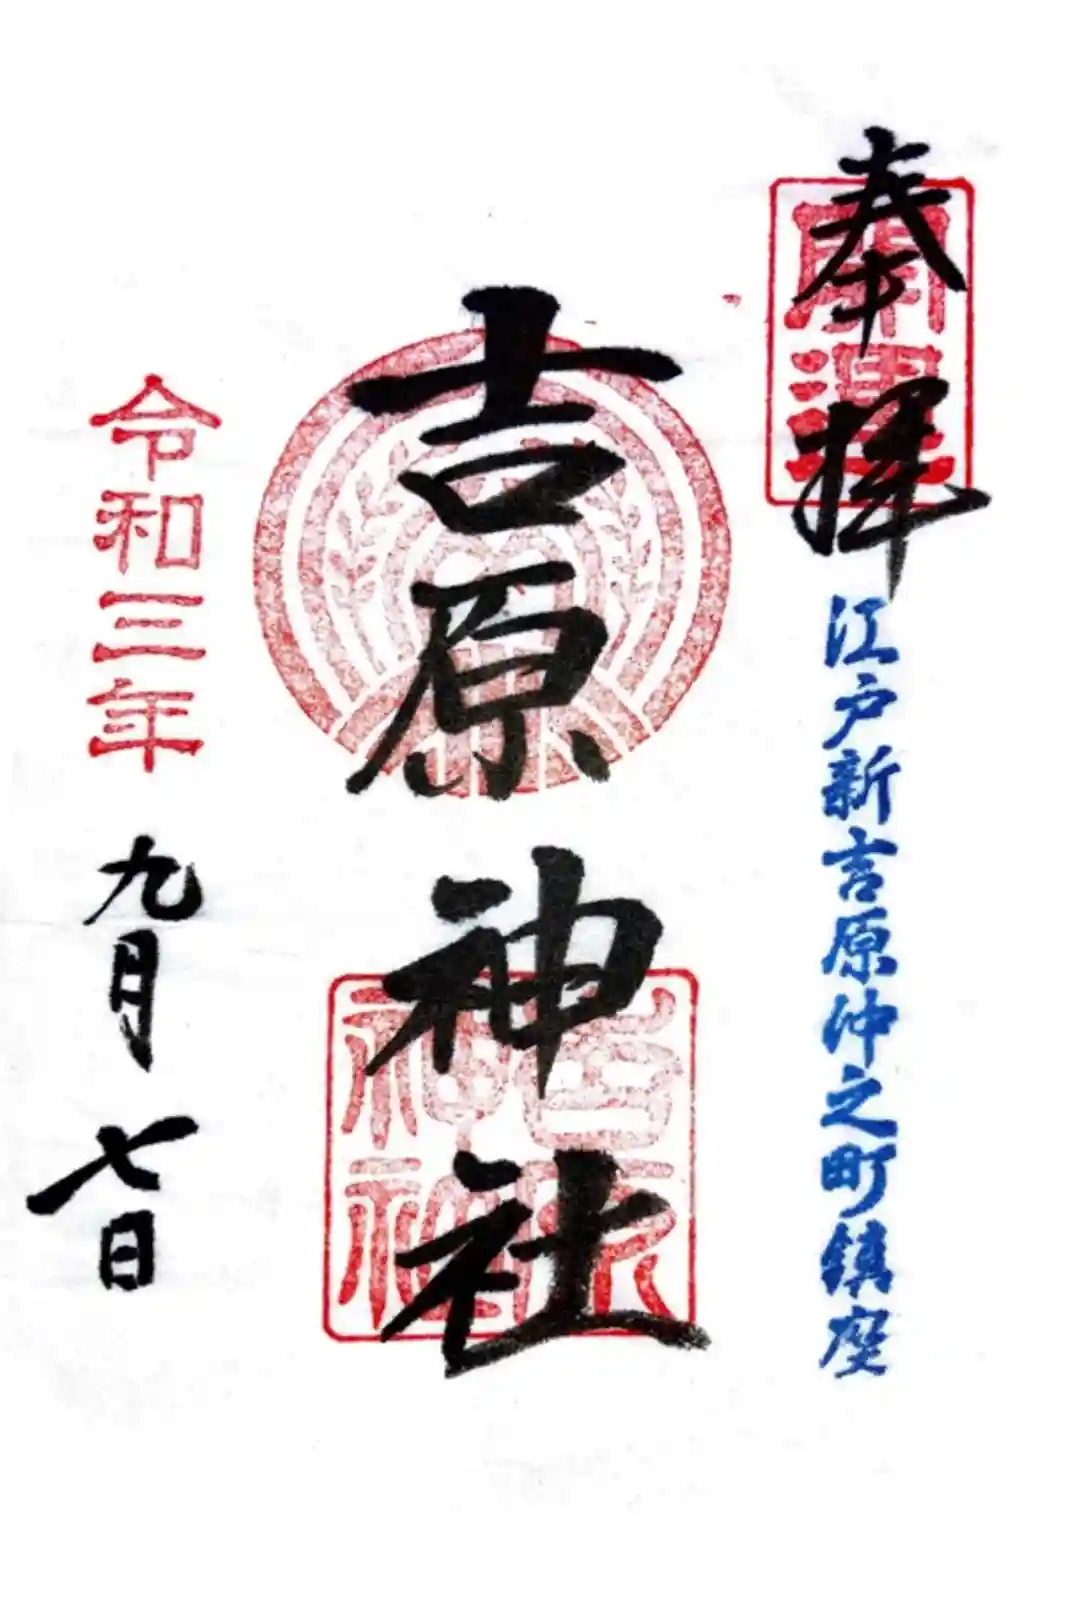 奉拝
開運
江戸新吉原仲之町鎮座
吉原神社
吉原神社
令和三年
九月七日